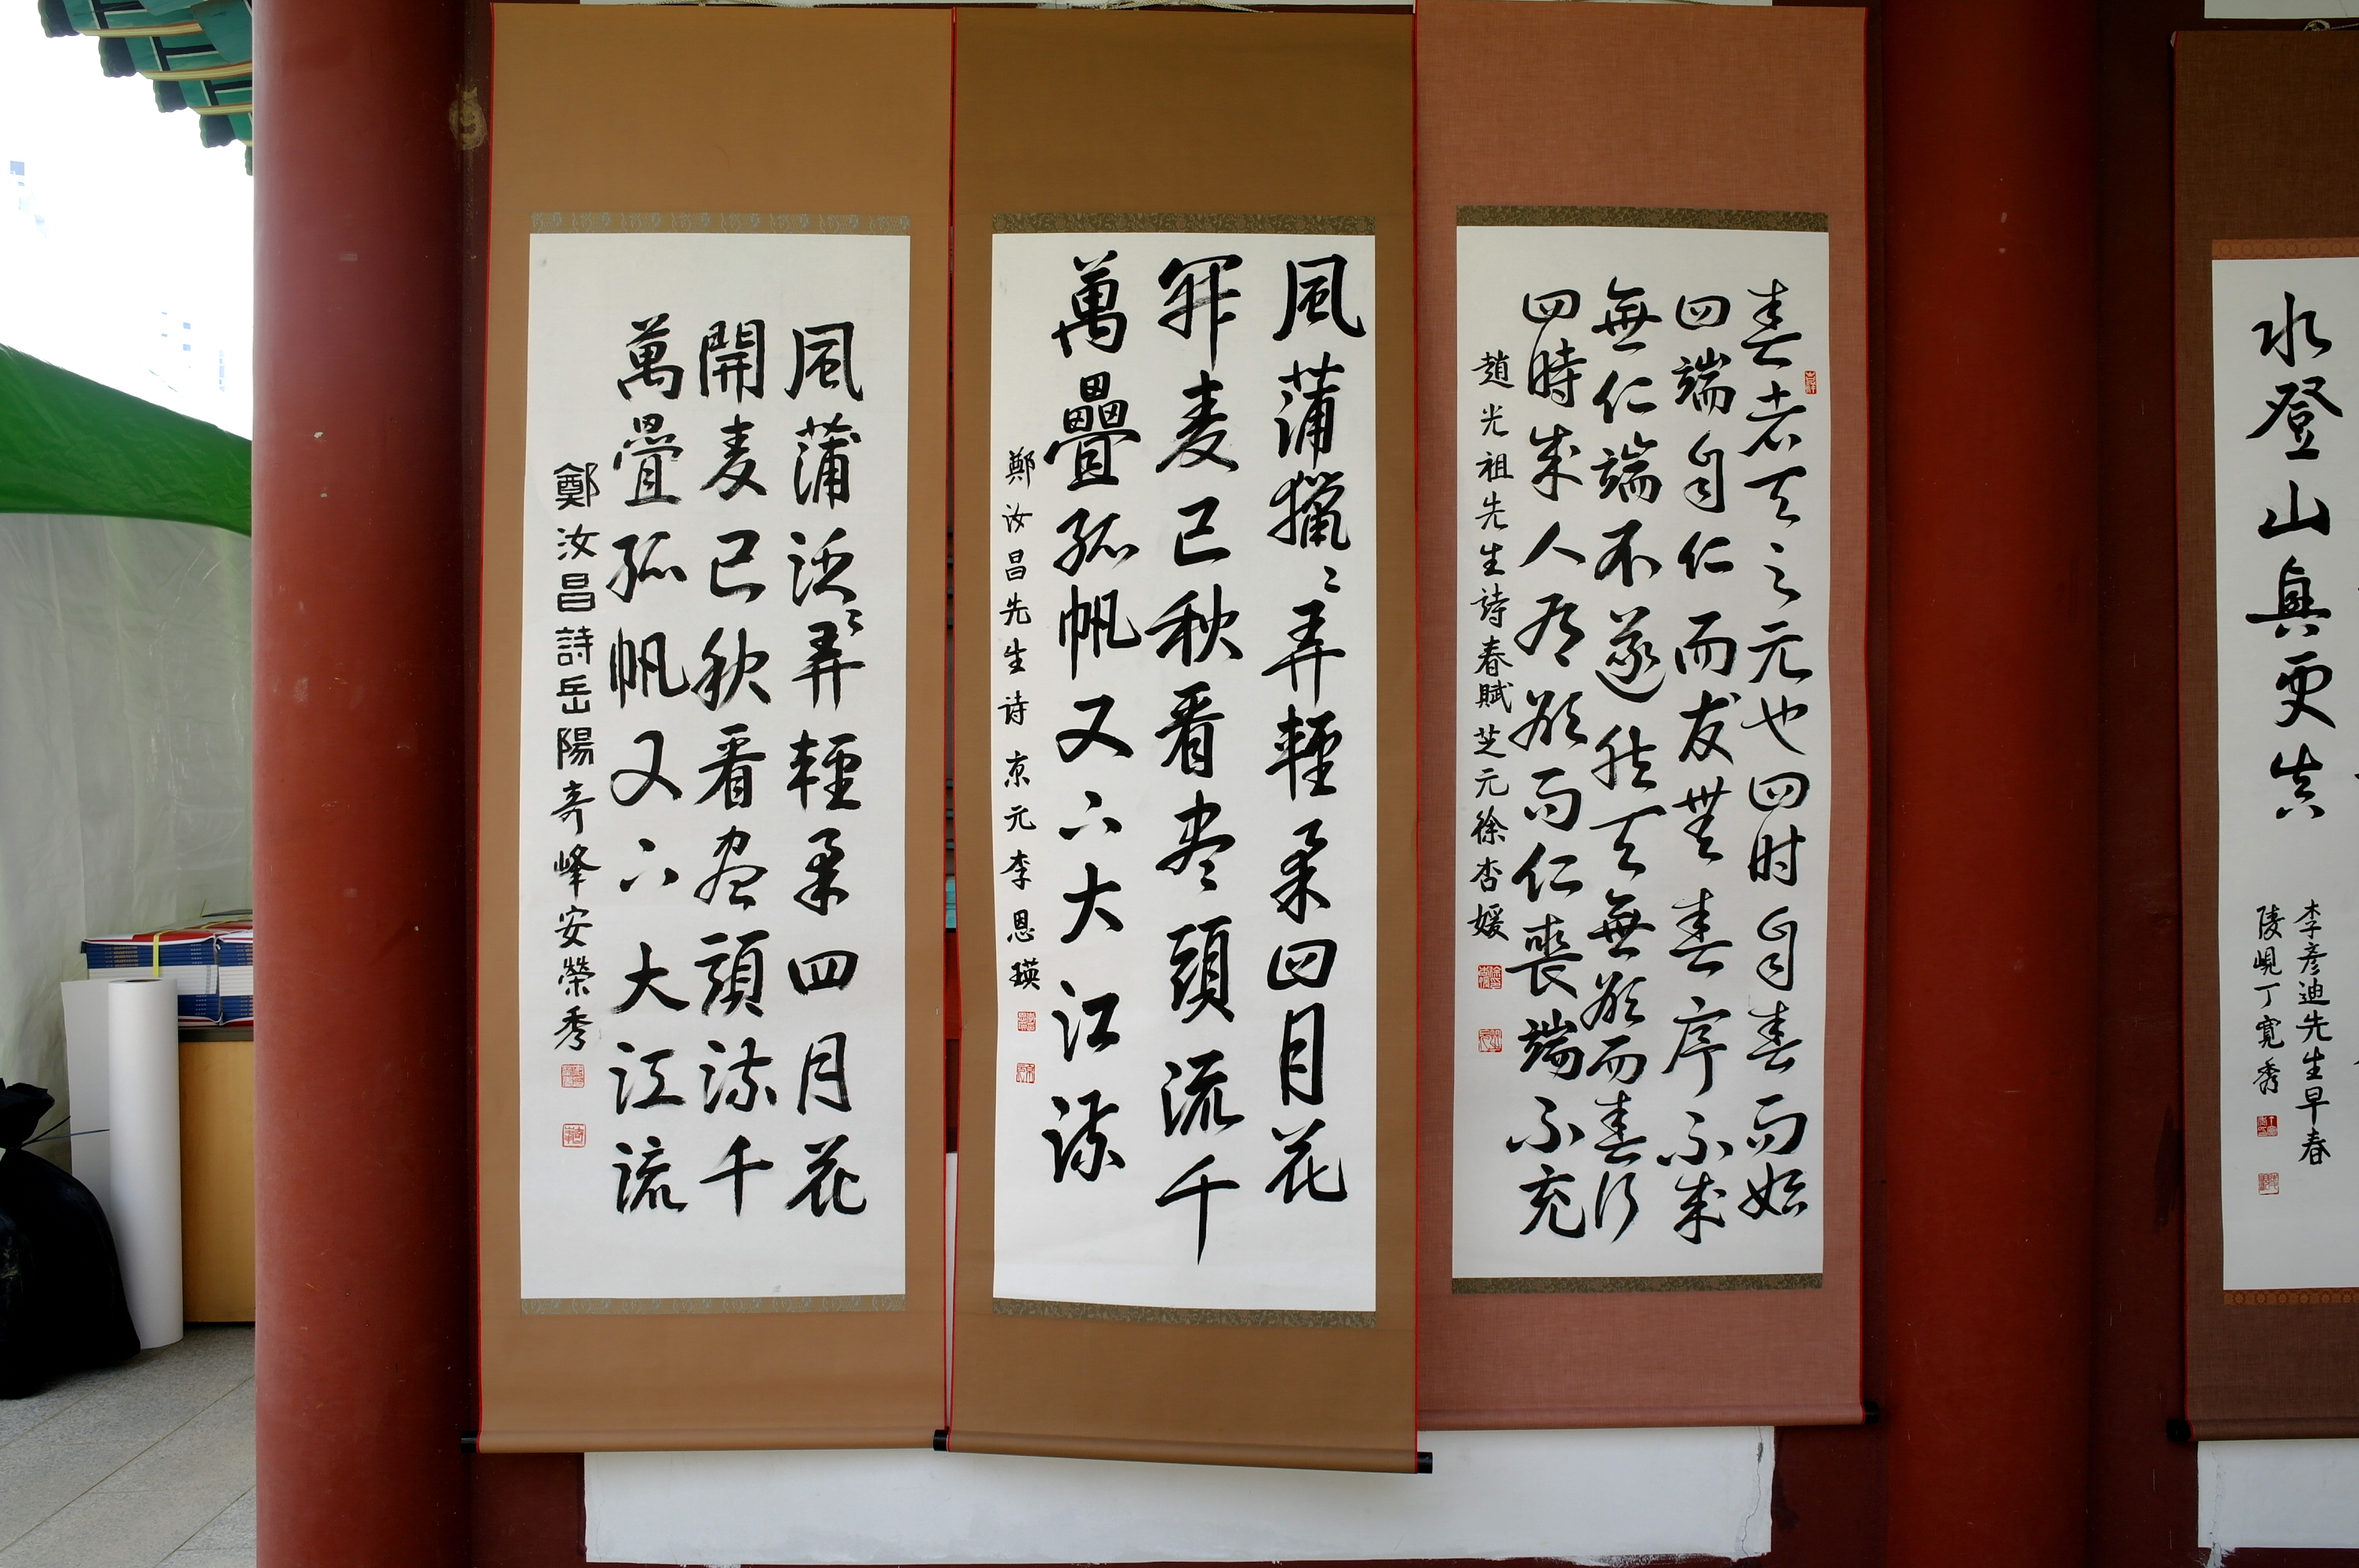 水登山興更真
李彦迪先生早春
陵峴丁寬秀
春者天之元也四时自春而始
四端自仁而发無春序不成
無仁端不遂然天無欲而春行
四時成人有欲而仁喪端不充
趙光祖先生詩春賦芝元徐杏媛
風蒲獵〻弄輕柔四月花
開麦已秋看尽頭流千
萬疊孤帆又下大江流
鄭汝昌先生诗 京元 李恩瑛
風蒲泛〻弄輕柔四月花
開麦已秋看尽頭流千
萬疊孤帆又下大江流
鄭汝昌詩岳陽奇峰安榮秀